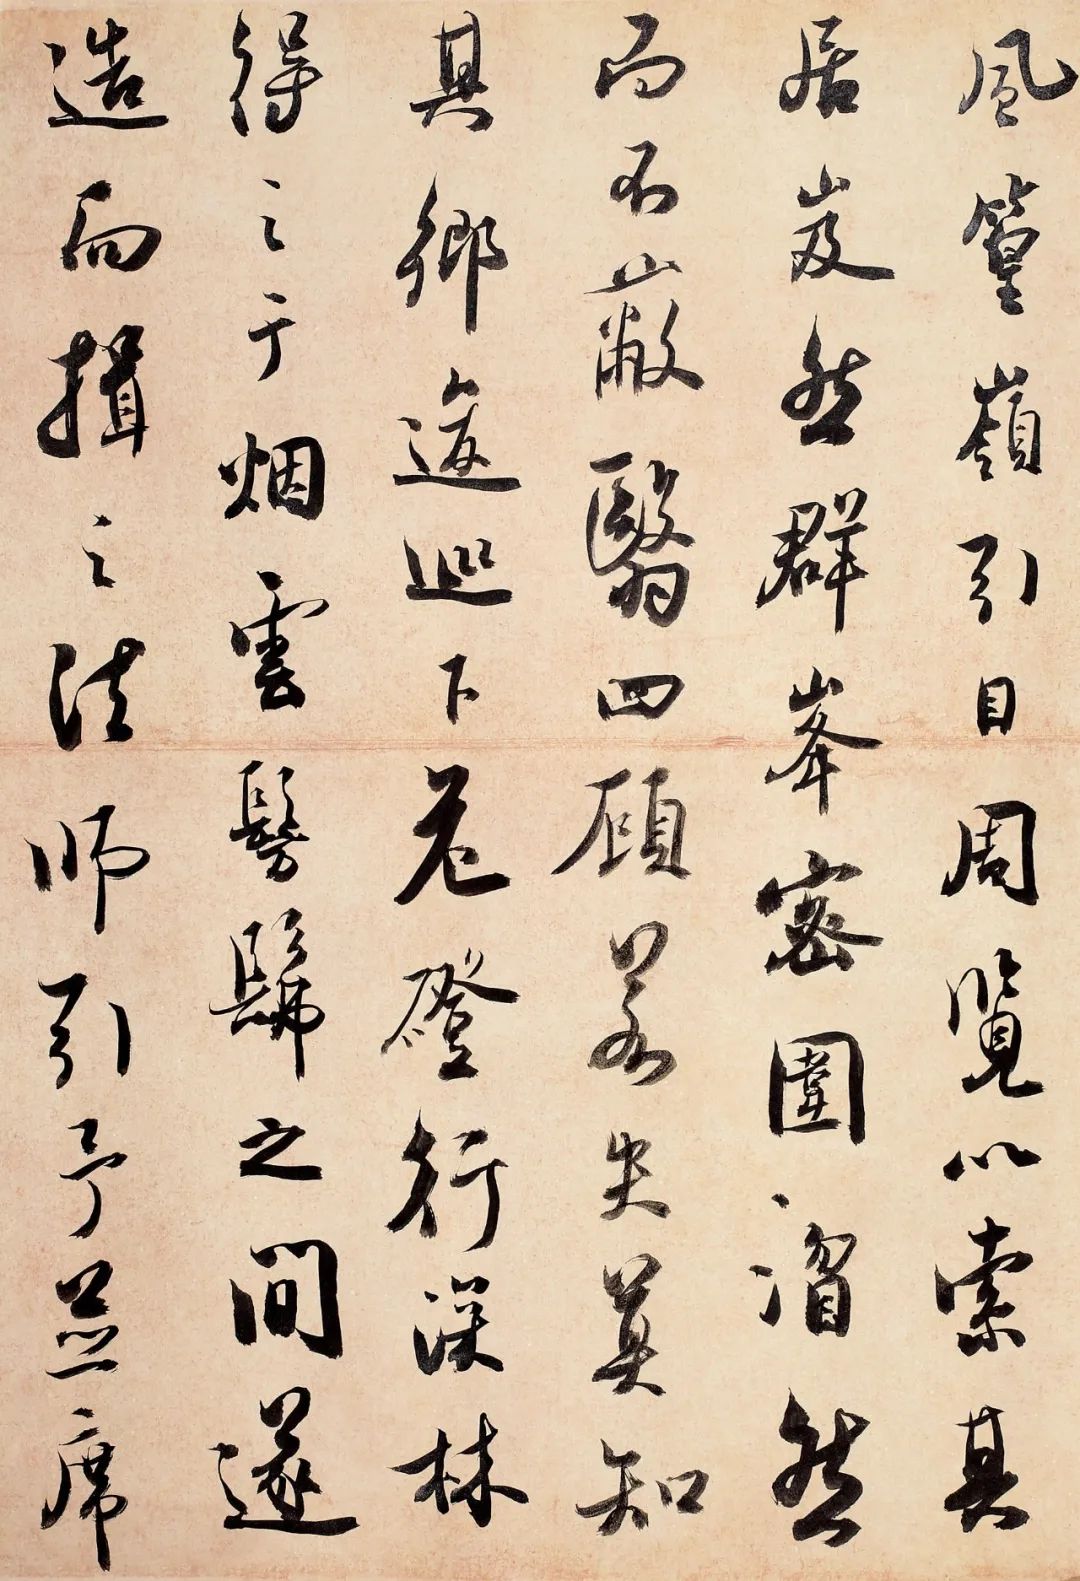 風篁嶺引目周覽以索其
居岌然群峯密圍溜然
而不蔽翳四顧若失莫知
其鄉逡巡下危磴行深林
得之于烟雲髣髴之間遂
造而揖之法師引予並席